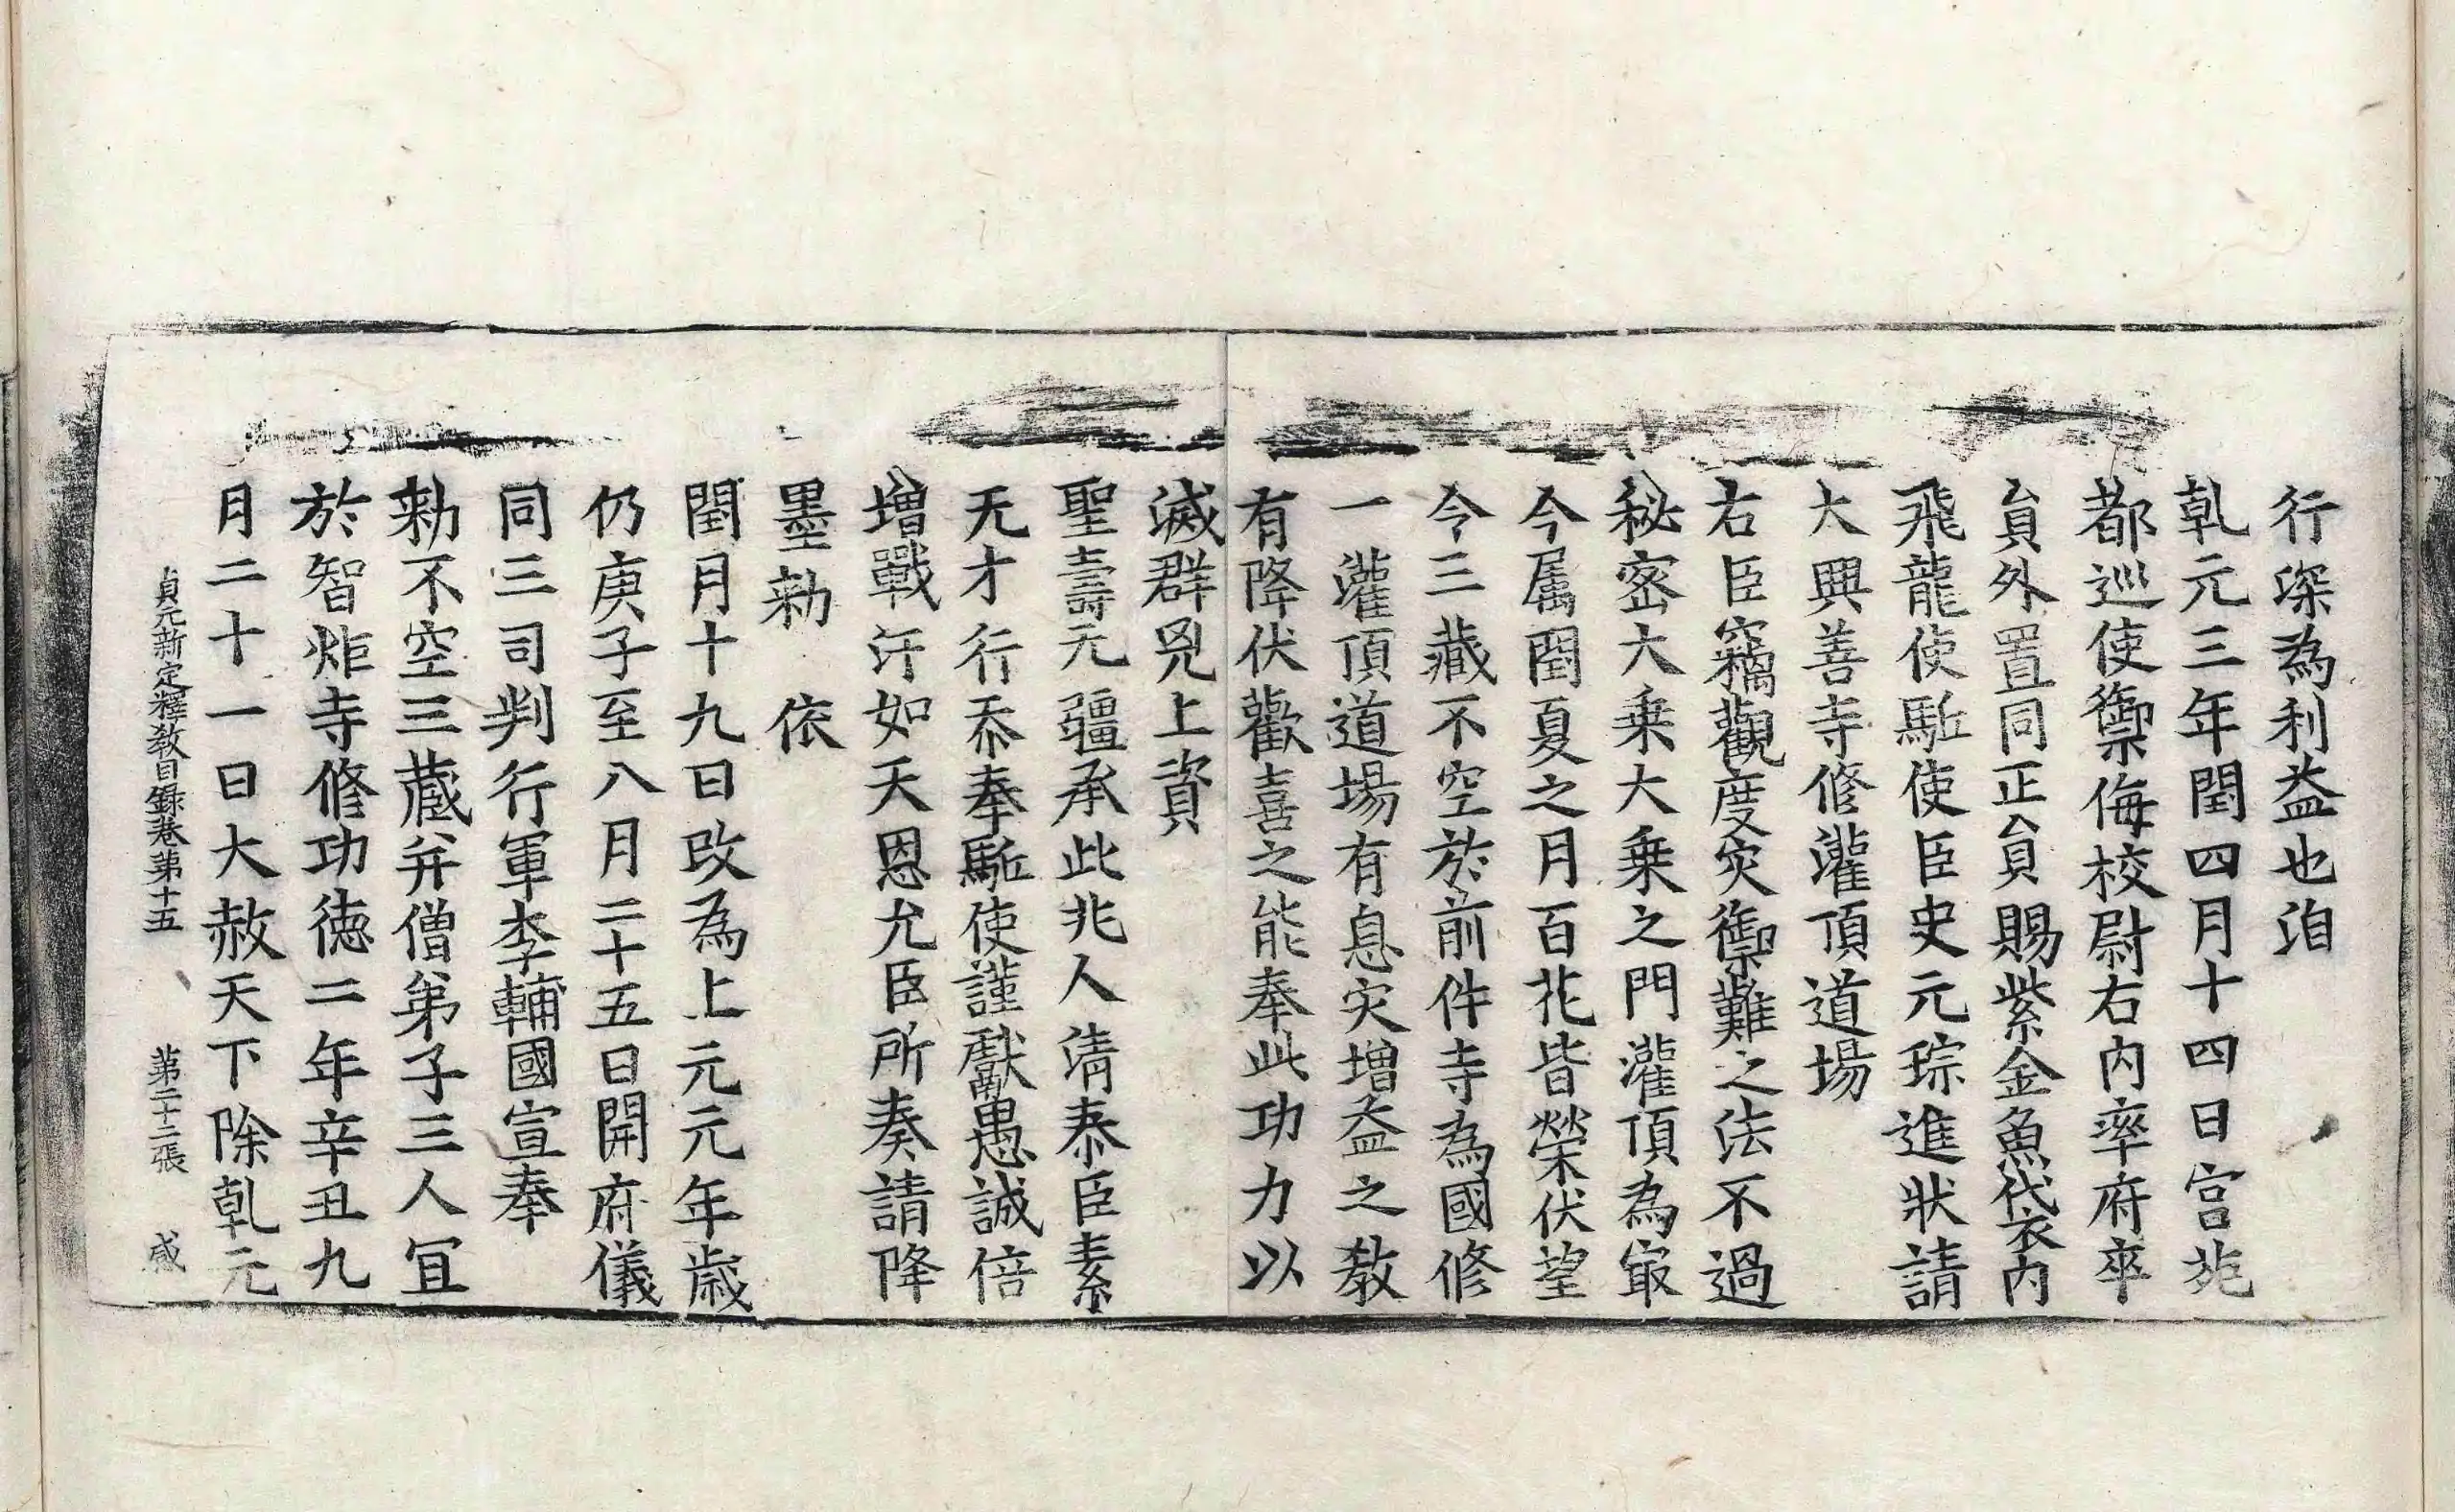 行深為利益也洎
乹元三年閏四月十四日宫苑
都巡使禦侮校尉右内率府率
貟外置同正貟賜紫金魚袋衣内
飛龍使駈使臣史元琮進狀請
大興善寺修灌頂道場
右臣竊觀度灾禦難之法不過
秘密大乗大乗之門灌頂為冣
今属閏夏之月百花皆榮伏望
今三藏不空於前件寺為國修
一灌頂道場有息灾增益之教
有降伏歡喜之能奉此功力以
滅群兇上資
聖壽元疆承此兆人清泰臣素
无才行忝奉駈使謹獻愚誠倍
增戰汗如天恩允臣所奏請降
墨勑　依
閏月十九日改為上元元年歳
仍庚子至八月二十五日開府儀
同三司判行軍李輔國宣奉
勑不空三藏弁僧弟子三人冝
於智炬寺修功徳二年辛丑九
月二十一日大赦天下除乹元
貞元新定釋教目錄卷第十五　第二十二張